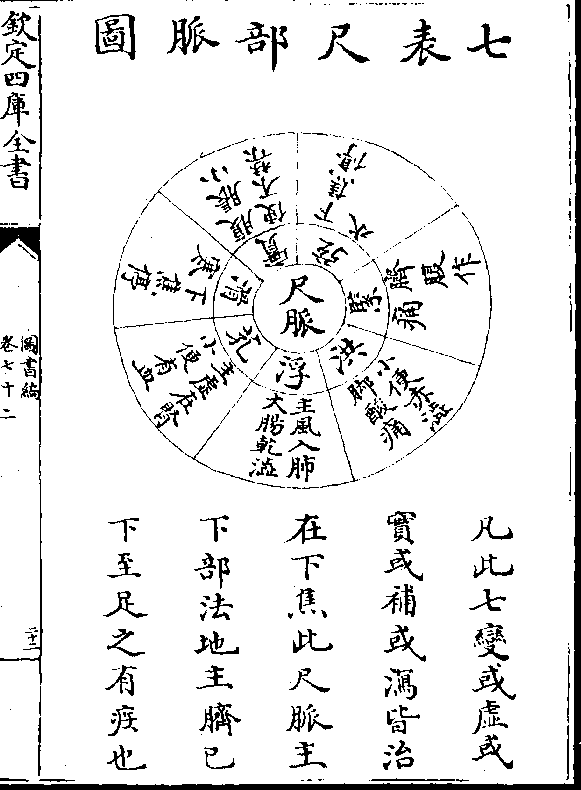 七表尺部脈圖
尺脈
浮
主風入肺
大腸乾澁
芤
主虚在腎
小便有血
滑
下焦停
寒
實
小腹脹
便不禁
弦
下焦停
水
緊
臍腹作
痛
洪
小便赤澁
脚酸痛
凡此七變或虛或
實或補或瀉皆治
在下焦此尺脈主
下部法地主臍已
下至足之有疾也
欽定四庫全書
圖書編
卷七十二